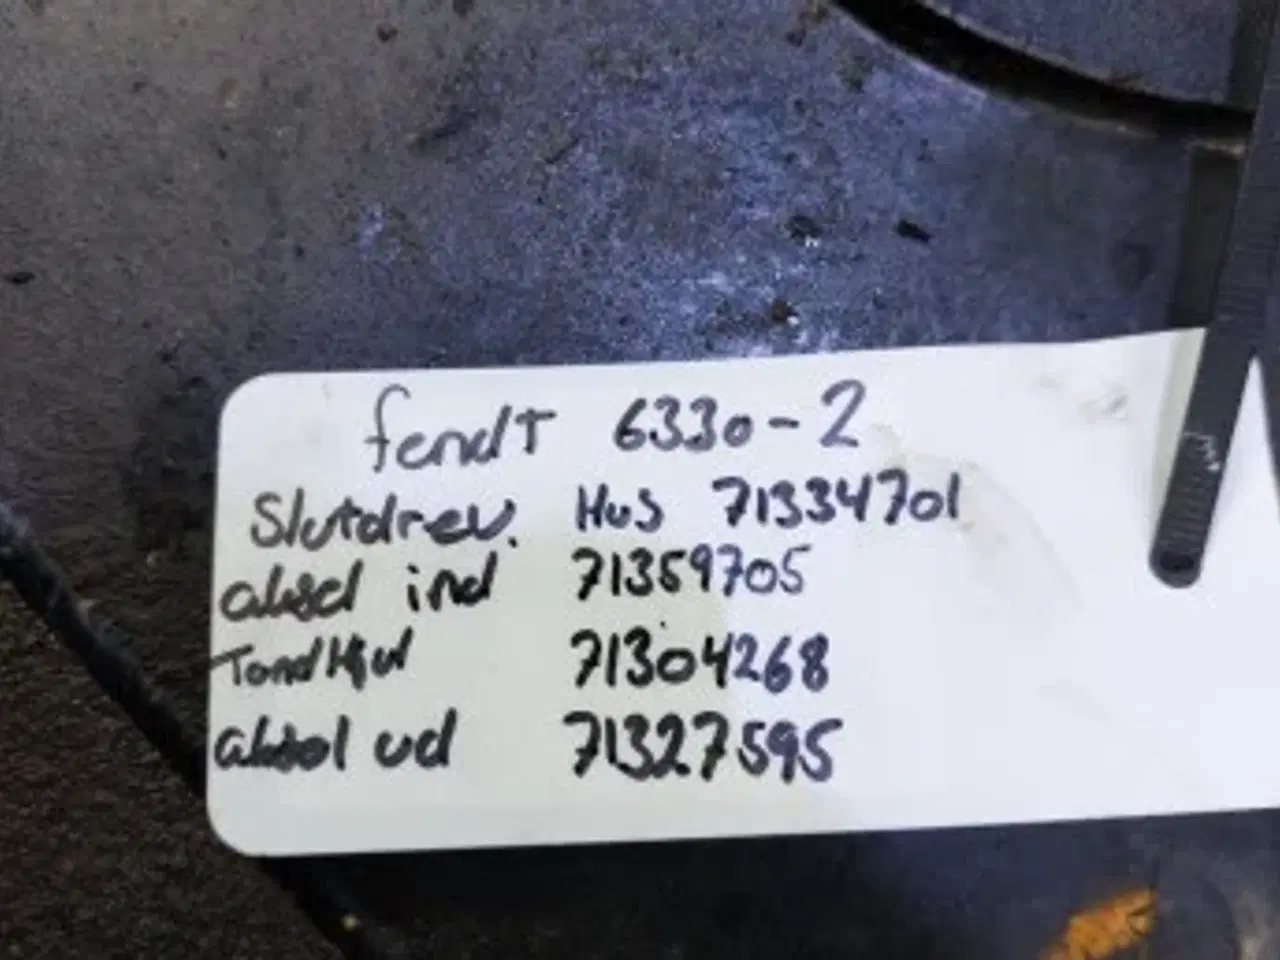 fendt 6330-2
Slutdrev. Hus 71334701
aksel ind 71359705
Tandhjul 71304268
aksel ud 71327595